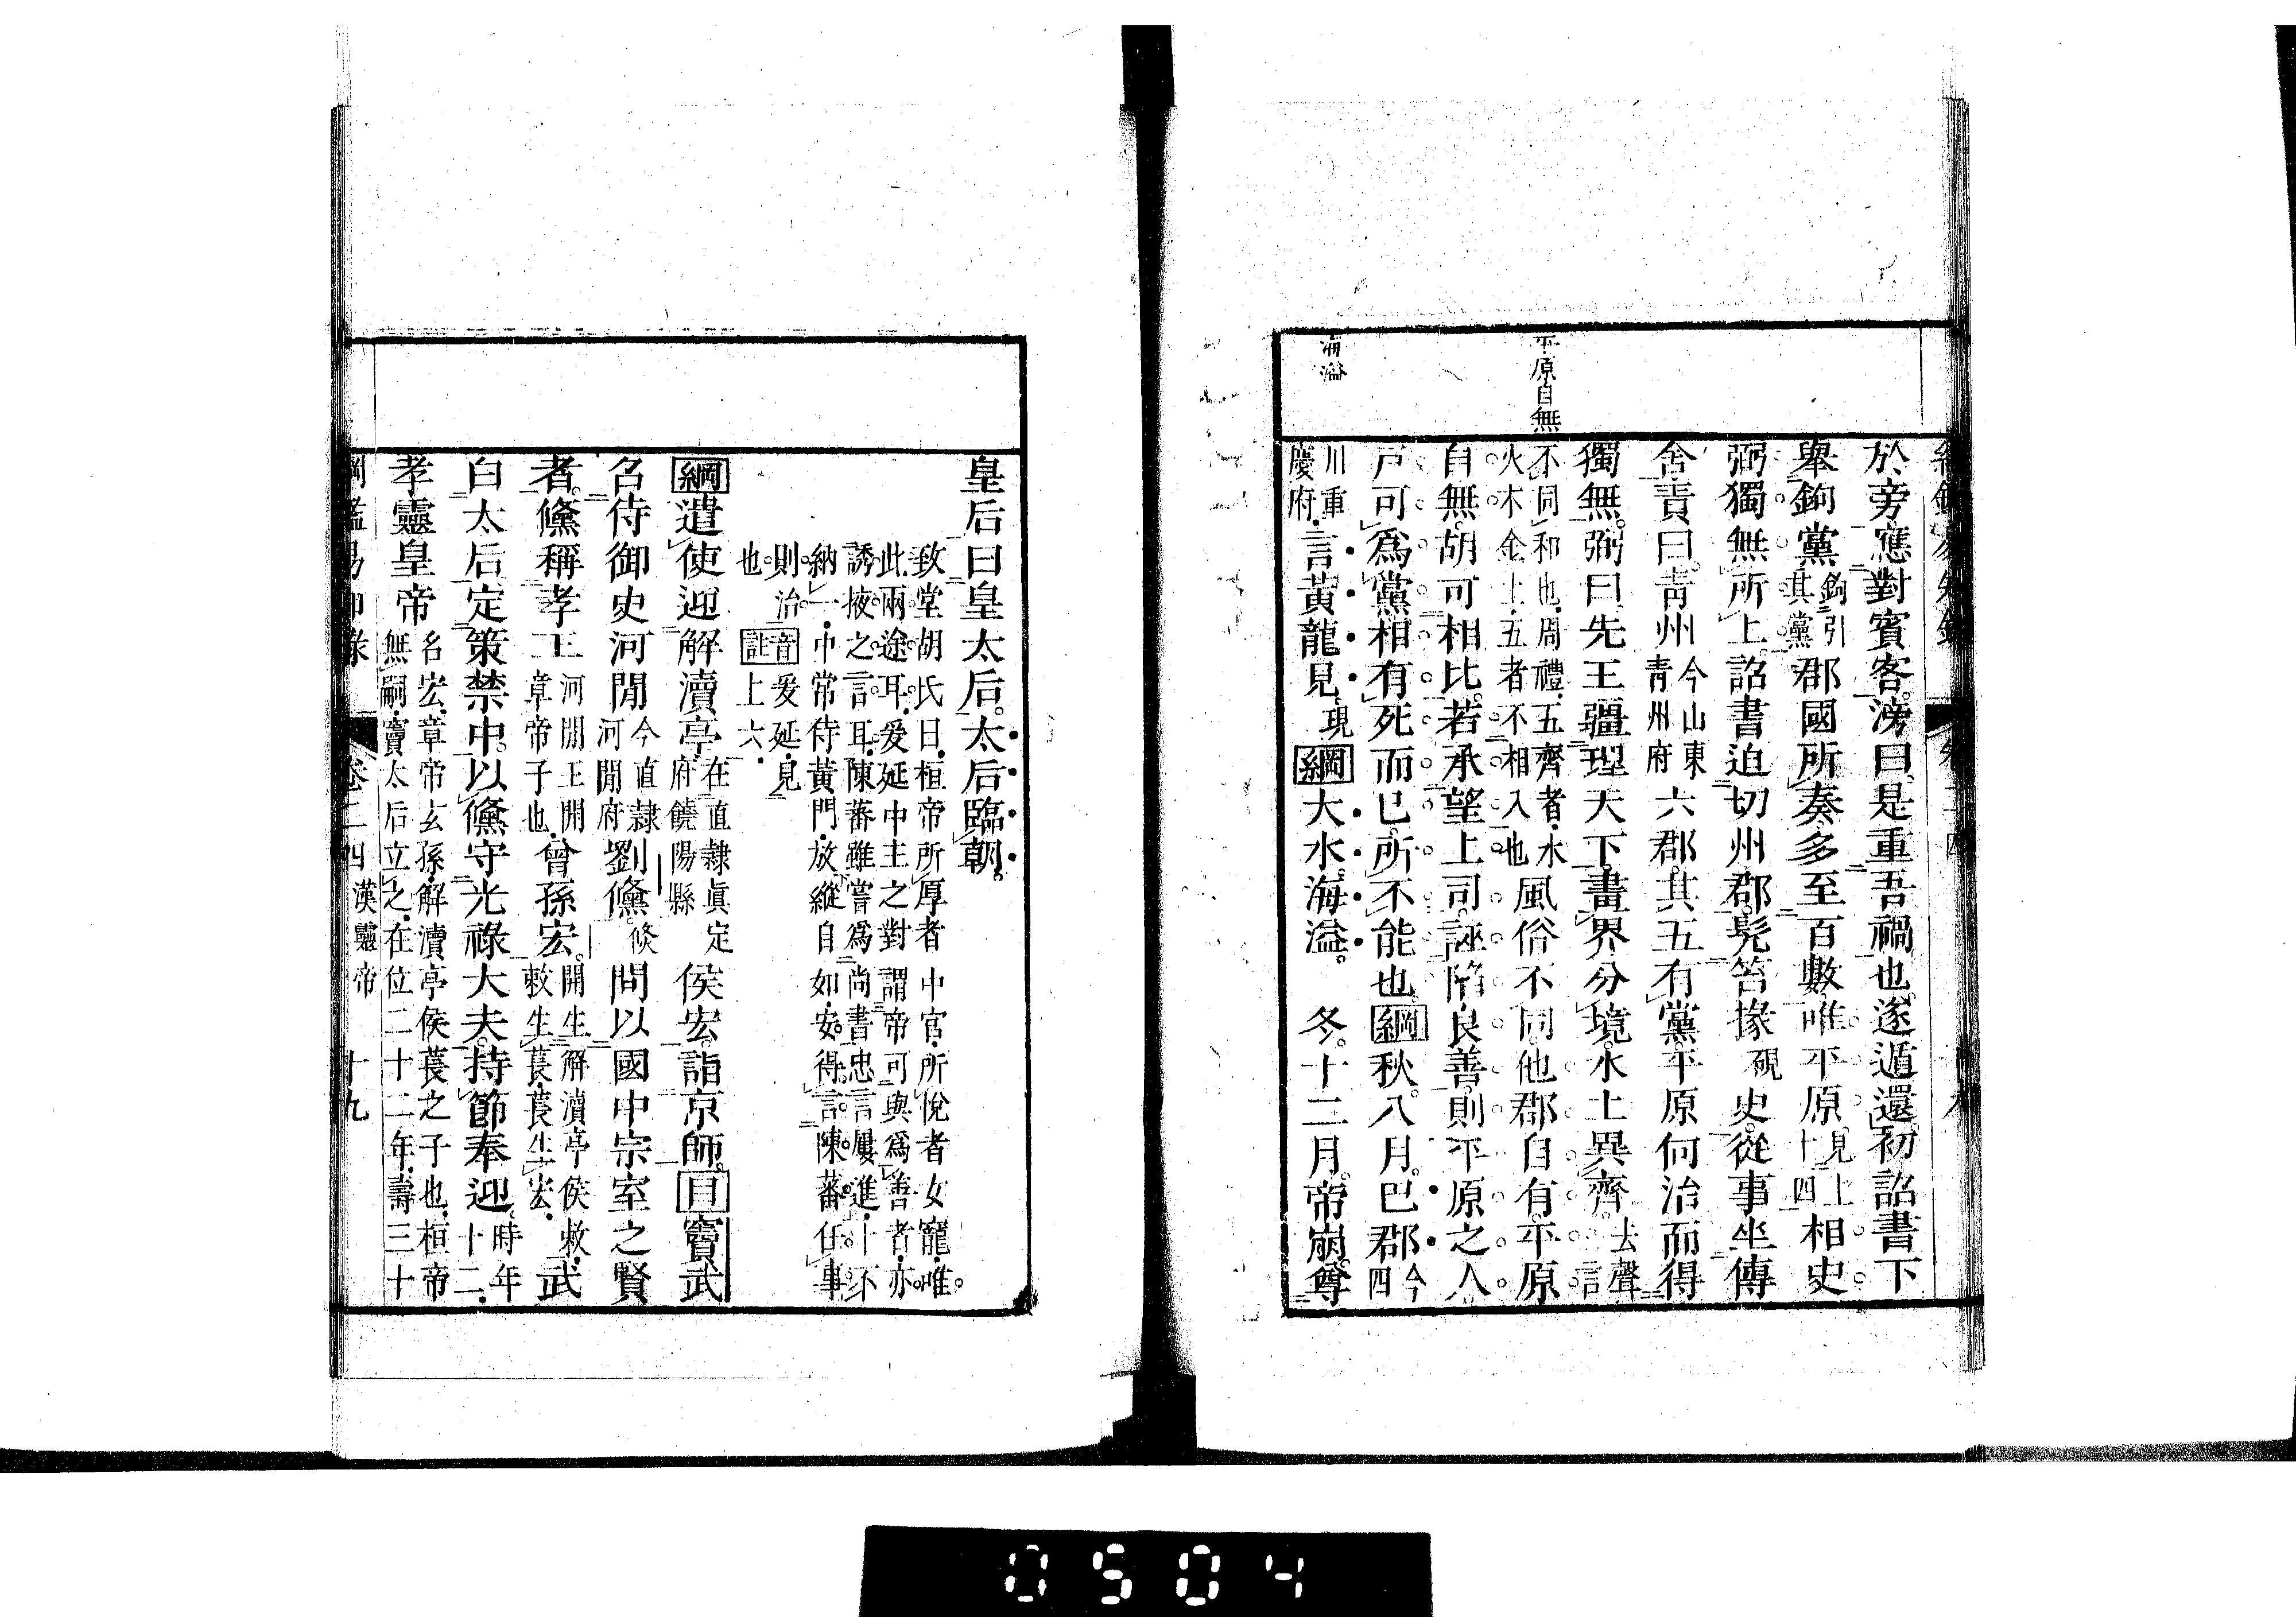 於旁應對賓客滂曰是重吾禍也遂遁還初詔書下
舉鉤黨鉤引其黨郡國所奏多至百數唯平原見上十四相史
弼獨無所上詔書迫切州郡髡笞掾硯史從事坐傳
舍責曰靑州今山東靑州府六郡其五有黨平原何治而得
獨無弼曰先王疆理天下畫界分境水土異齊去聲言
不同和也周禮五齊者水火木金土五者不相入也風俗不同他郡自有平原
自無胡可相比若承望上司誣陷良善則平原之人
戸可爲黨相有死而已所不能也綱秋八月巴郡今四
川重慶府言黃龍見現綱大水海溢 冬十二月帝崩尊
平原自無
海溢
皇后曰皇太后太后臨朝
致堂胡氏曰桓帝所厚者中官所悅者女寵唯
此兩途耳爰延中主之對謂帝可與爲善者亦
誘掖之言耳陳蕃雖嘗爲尚書忠言屢進一不
納一中常侍黃門放縱自如安得言陳蕃任事
則治也音註爰延見上六
綱遣使迎解瀆亭在直隸眞定府饒陽縣侯宏詣京師目竇武
召侍御史河閒今直隸河閒府劉儵倏問以國中宗室之賢
者儵稱孝王河閒王開章帝子也曾孫宏開生解瀆亭侯敕敕生萇萇生宏武
白太后定策禁中以儵守光祿大夫持節奉迎時年十二
孝靈皇帝名宏章帝玄孫解瀆亭侯萇之子也桓帝無嗣竇太后立之在位二十二年壽三十
綱鑑易知錄 卷二四 漢靈帝 十九